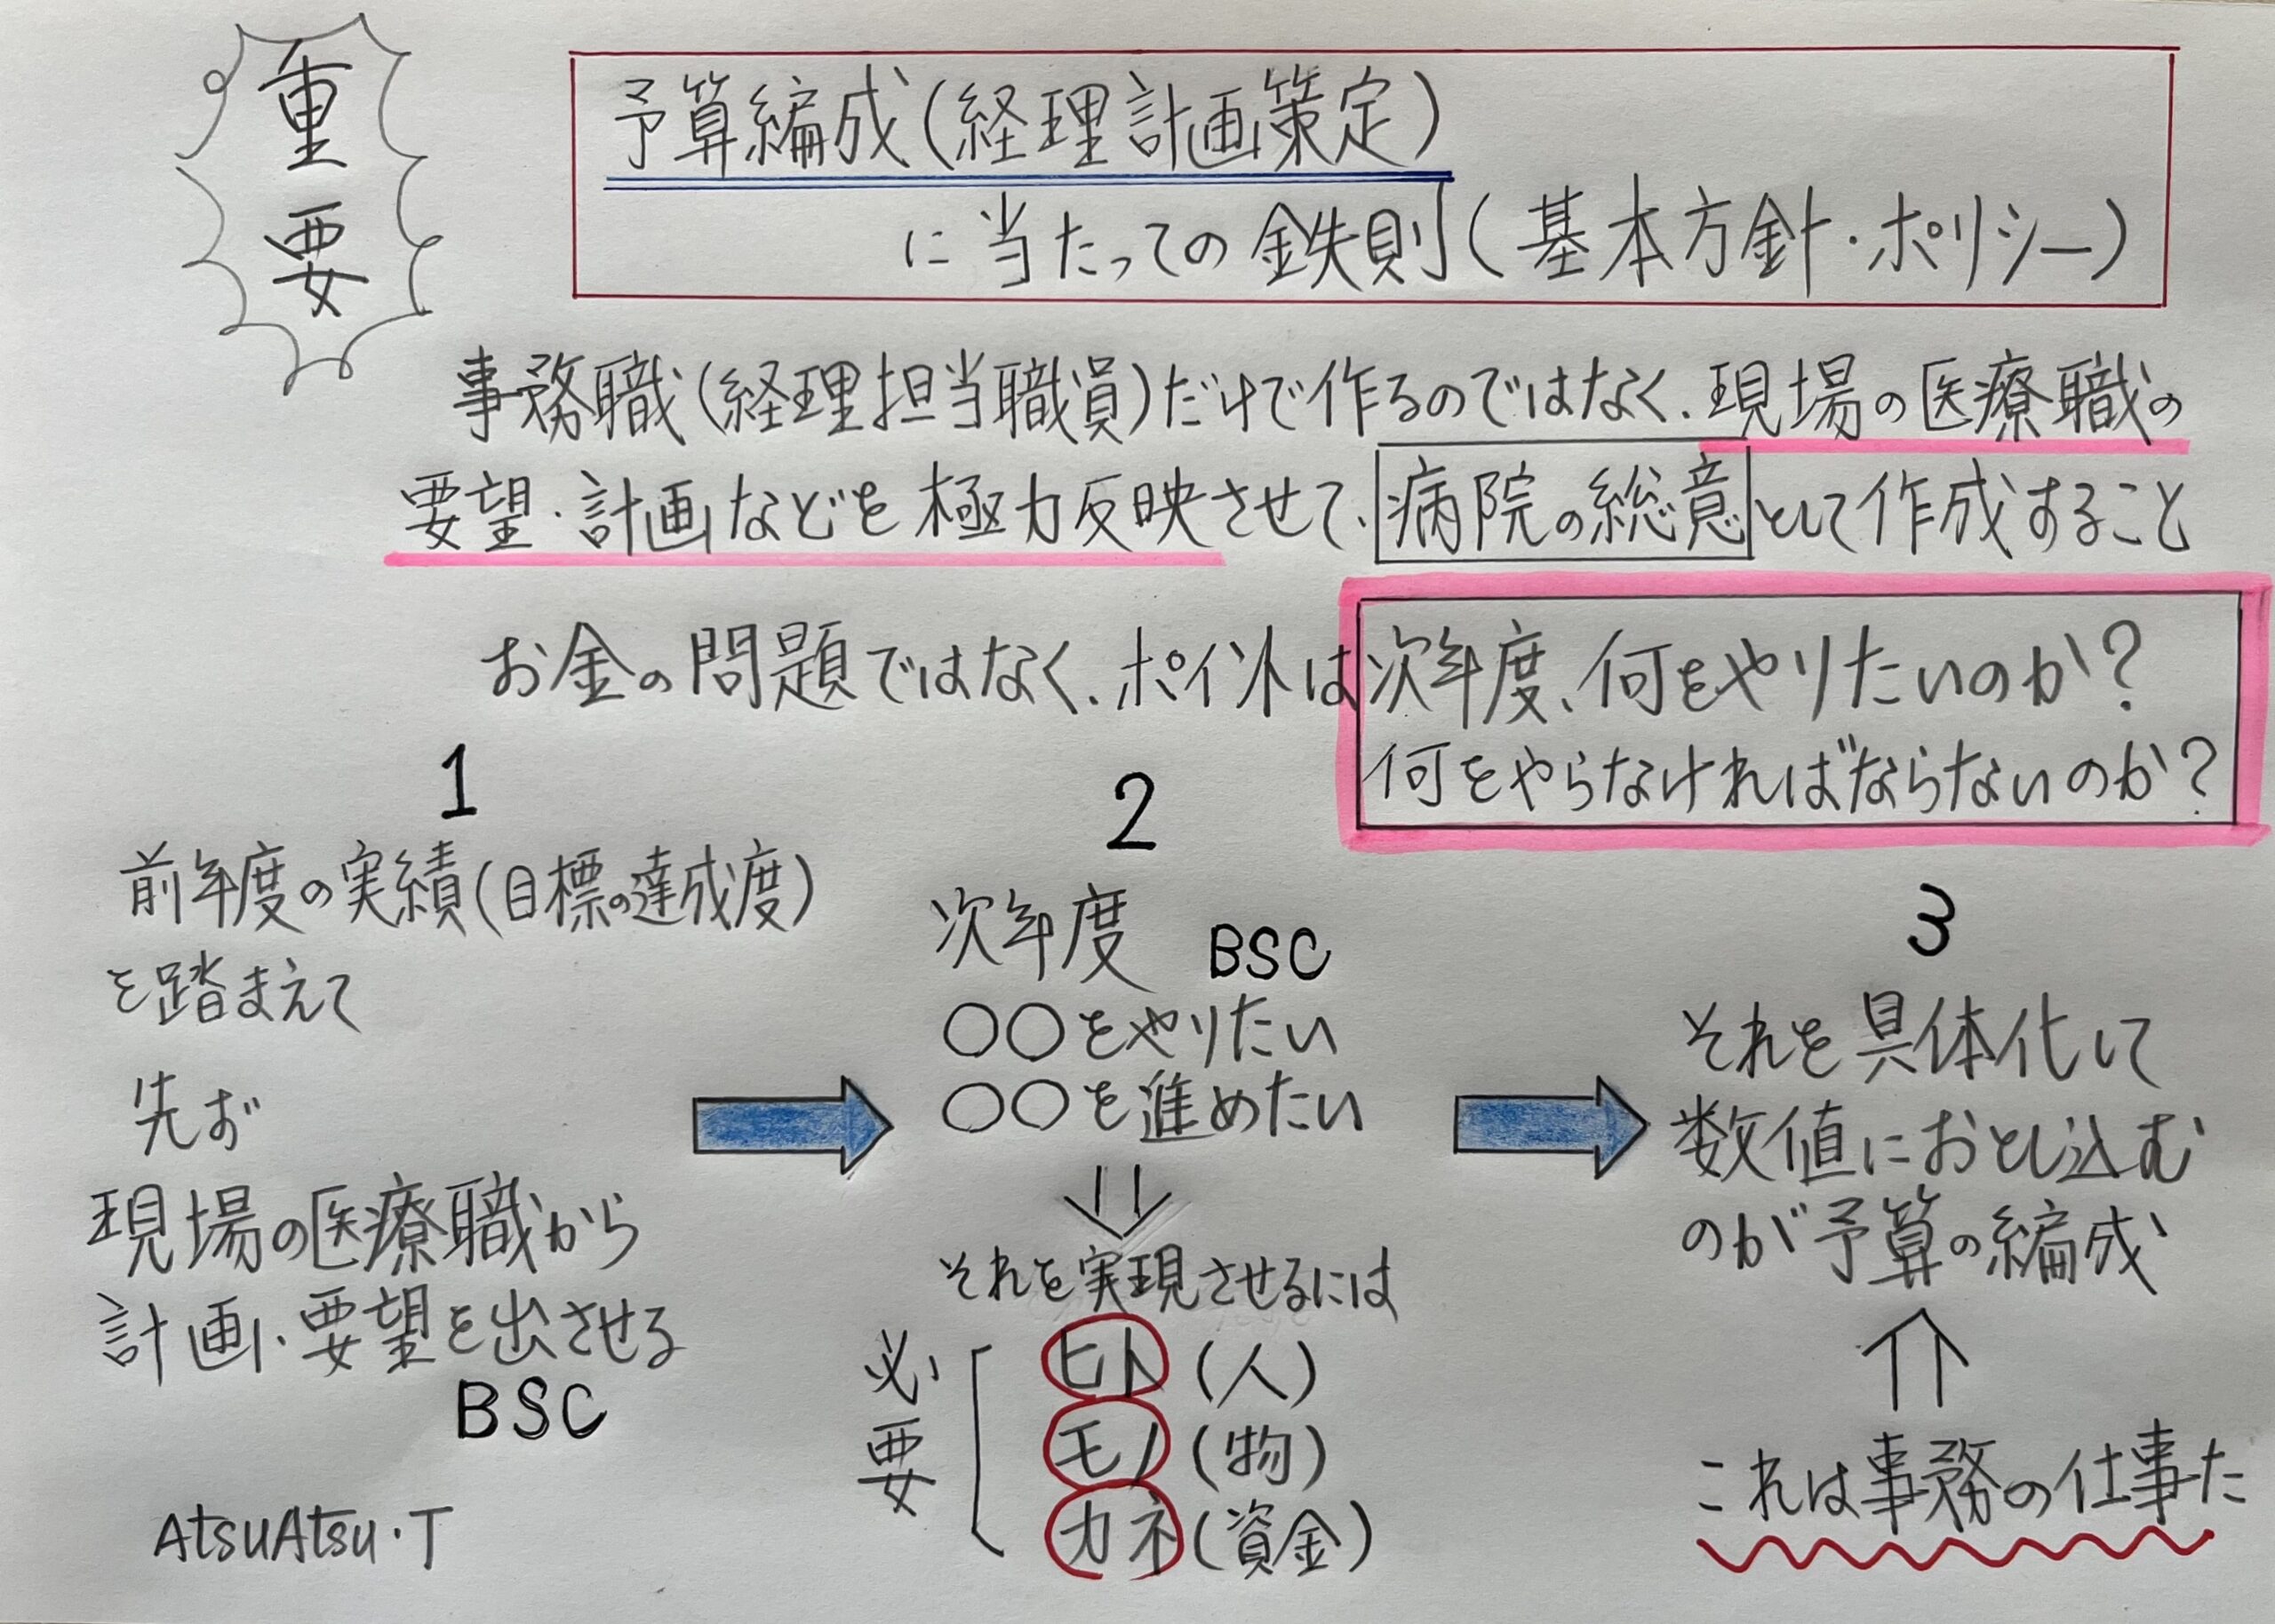 重要
予算編成(経理計画策定)
に当たっての鉄則(基本方針・ポリシー)
事務職(経理担当職員)だけで作るのではなく、現場の医療職の
要望・計画などを極力反映させて、病院の総意として作成すること
お金の問題ではなく、ポイントは次年度、何をやりたいのか?
何をやらなければならないのか?
1
前年度の実績(目標の達成度)
を踏まえて
先ず
現場の医療職から
計画・要望を出させる
BSC
2
次年度 BSC
○○をやりたい
○○を進めたい
それを実現させるには
必要
ヒト(人)
モノ(物)
カネ(資金)
3
それを具体化して
数値におとし込む
のが予算の編成
これは事務の仕事だ
AtsuAtsu・T